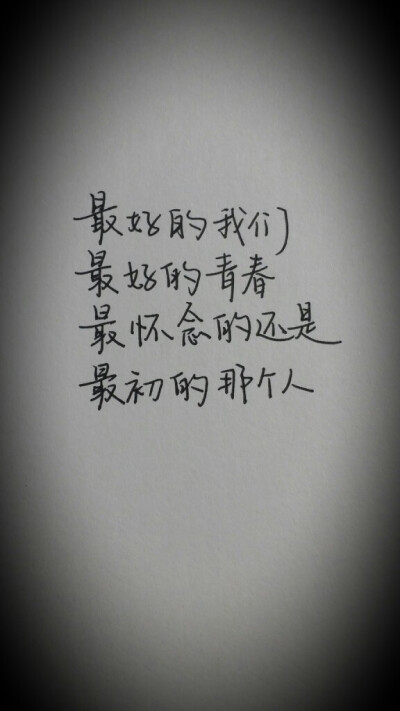 最好的我们
最好的青春
最怀念的还是
最初的那个人